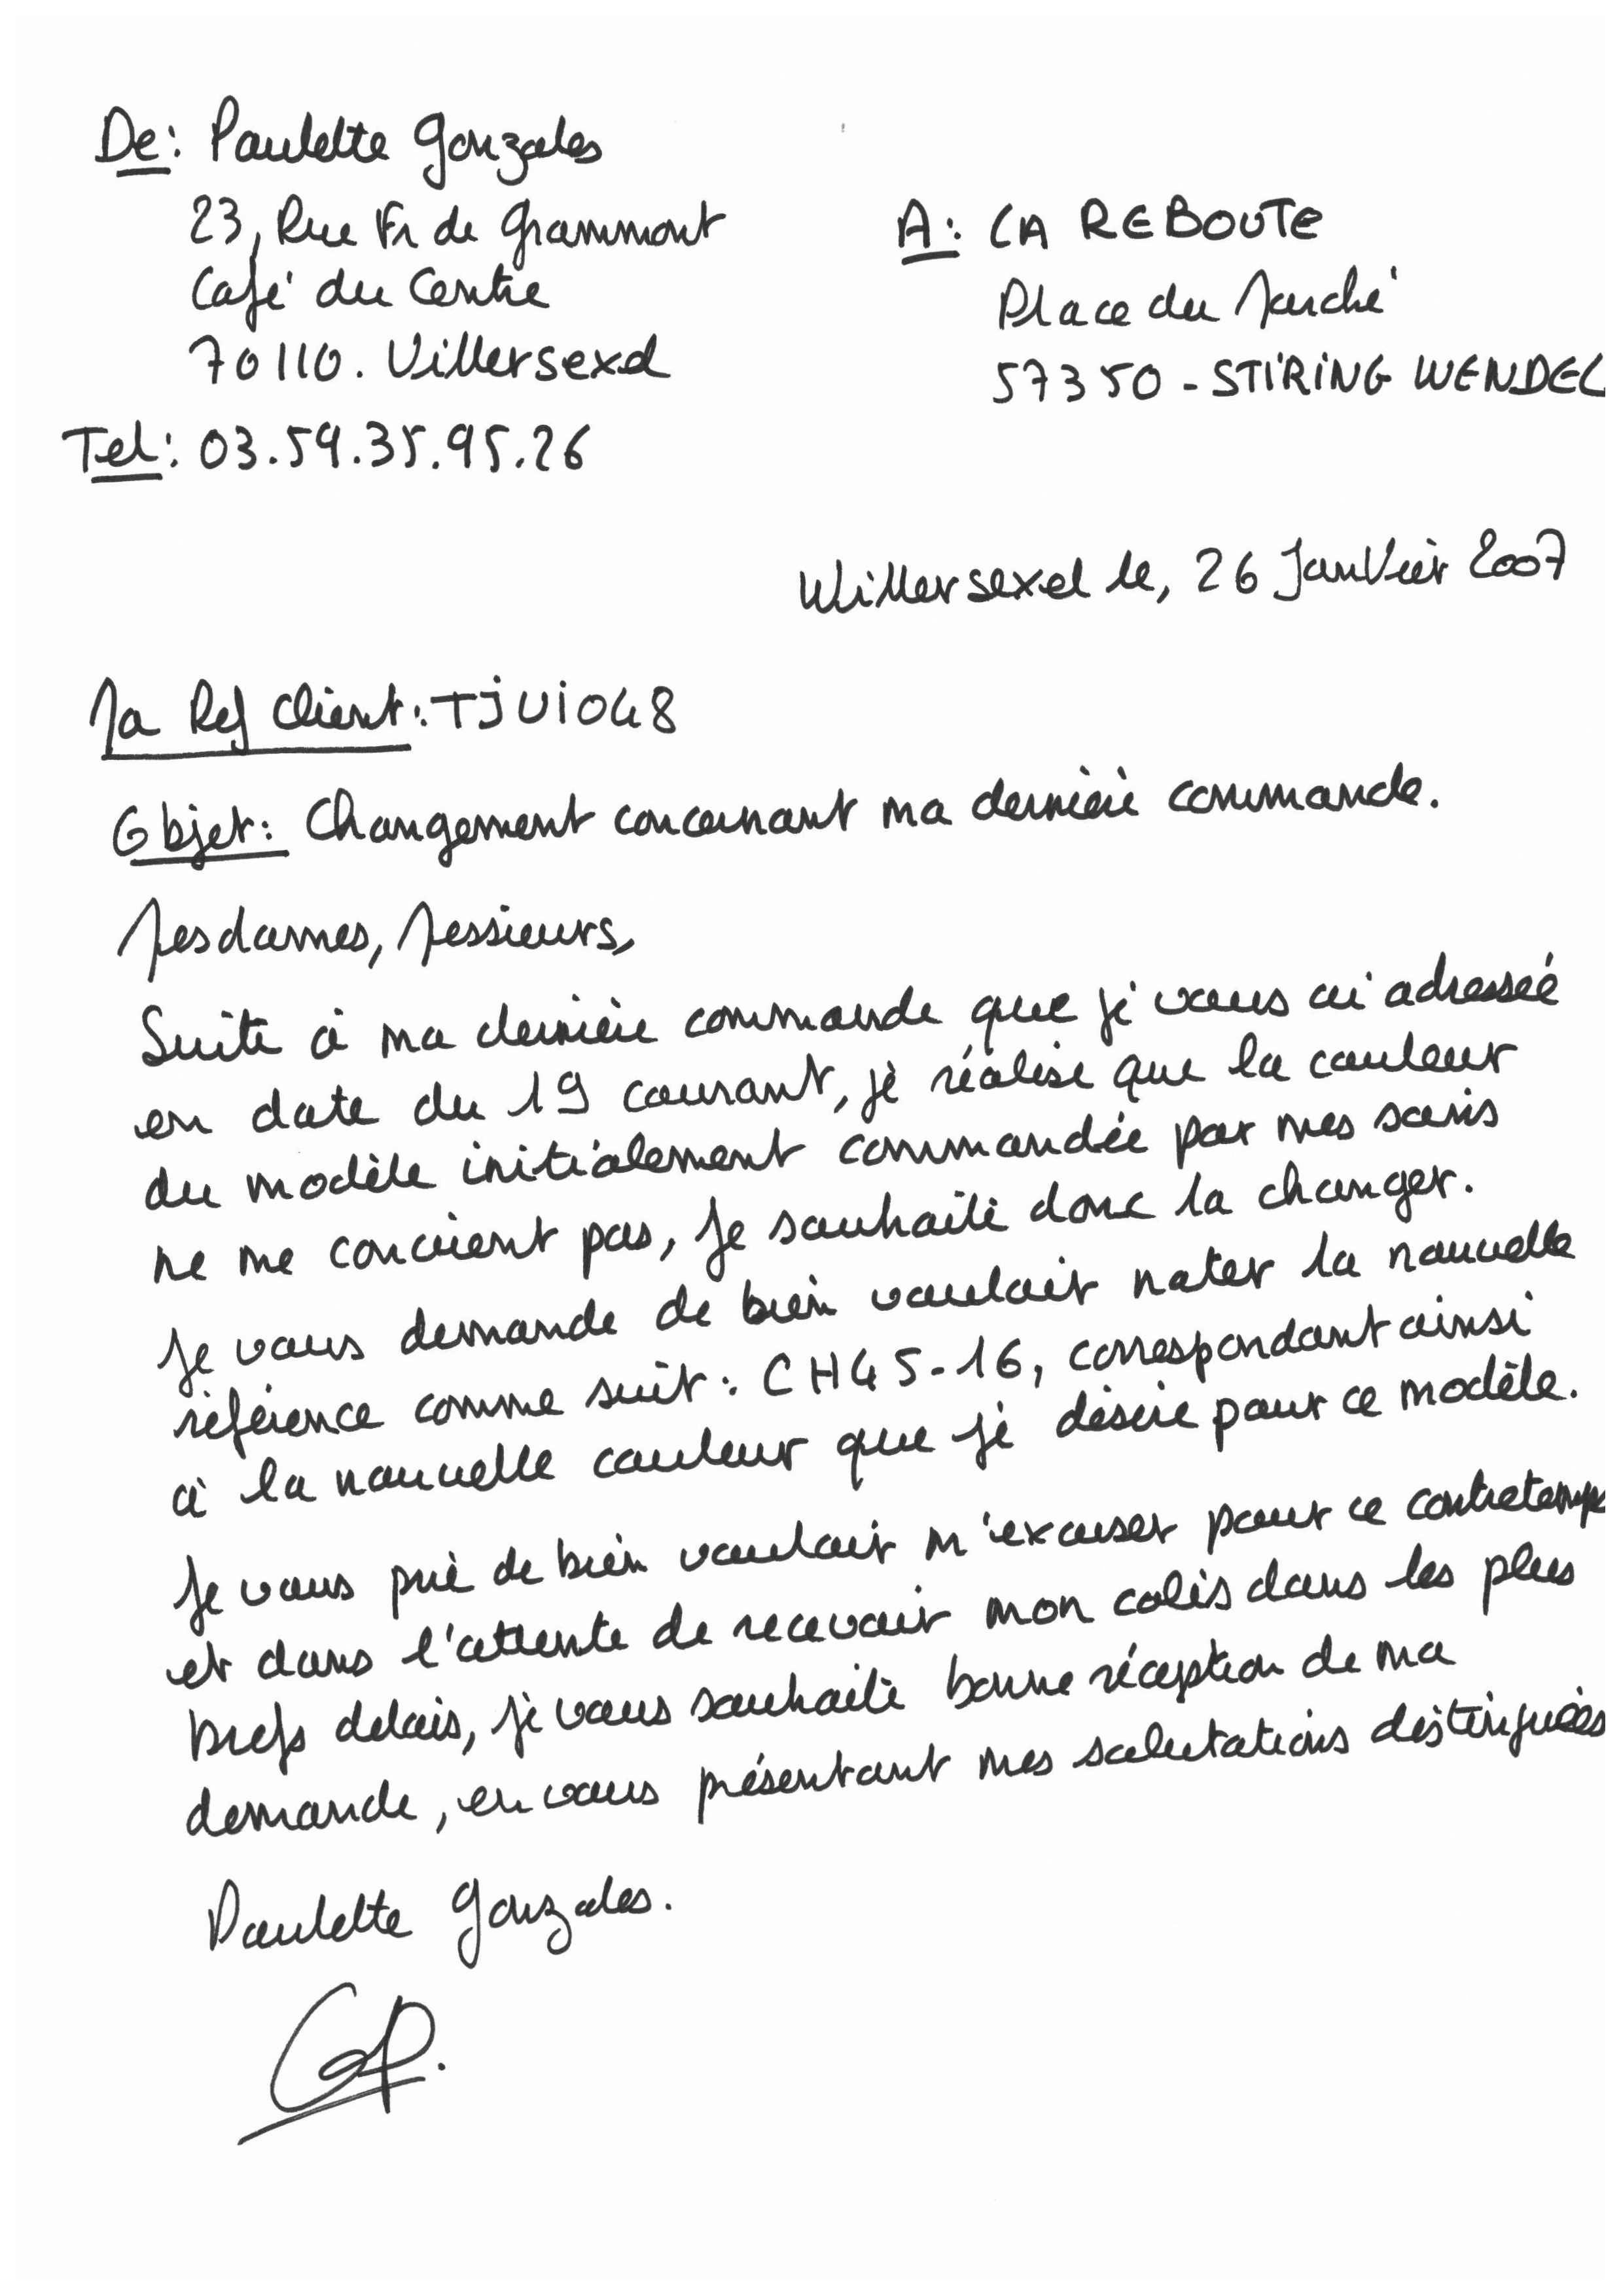 De: Paulette Gonzales
23, Rue Fr de Grammont
Café du Centre
70110. Villersexel
Tel: 03.59.35.95.26
A: LA REBOUTE
Place du Marché
57350 - STIRING WENDEL
Willersexel le, 26 Janvier 2007
Ma Ref client: TJUI048
Objet: Changement concernant ma dernière commande.
Mesdames, Messieurs,
Suite à ma dernière commande que je vous ai adressée
en date du 19 courant, je réalise que la couleur
du modèle initialement commandée par mes soins
ne me convient pas, je souhaite donc la changer.
Je vous demande de bien vouloir noter la nouvelle
référence comme suit: CH45-16, correspondant ainsi
à la nouvelle couleur que je désire pour ce modèle.
Je vous prie de bien vouloir m'excuser pour ce contretemps
et dans l'attente de recevoir mon colis dans les plus
brefs delais, je vous souhaite bonne réception de ma
demande, en vous présentant mes salutations distinguées
Paulette Gonzales.
GP.